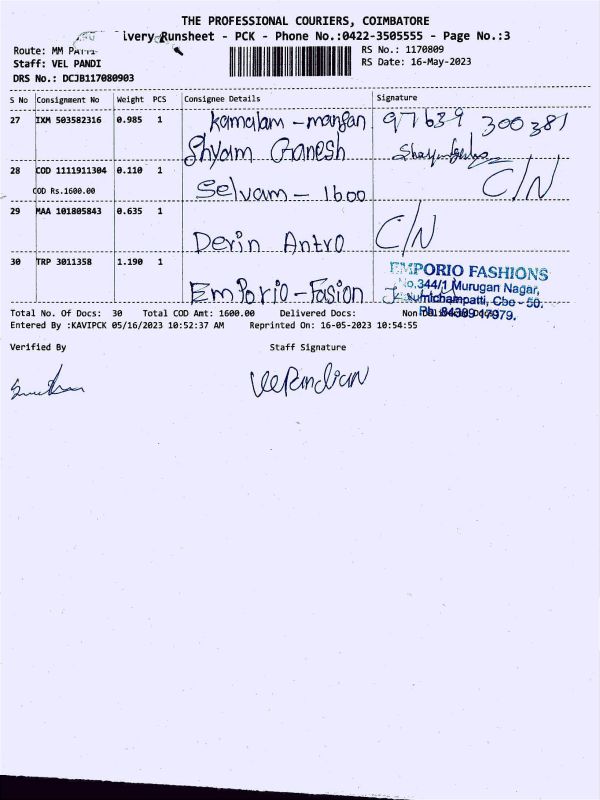 THE PROFESSIONAL COURIERS, COIMBATORE
ivery Runsheet - PCK - Phone No.:0422-3505555 - Page No.:3
Route: MM PATTI
Staff: VEL PANDI
DRS No.: DCJB117080903
RS No.: 1170809
RS Date: 16-May-2023
S No Consignment No Weight PCS Consignee Details Signature
27 IXM 503582316 0.985 1 Kamalam - mangan 97639 300381
Shyam Ganesh
28 COD 1111911304 0.110 1 C/N
COD Rs.1600.00 Selvam - 1600
29 MAA 101805843 0.635 1 C/N
Devin Antro
30 TRP 3011358 1.190 1 EMPORIO FASHIONS
No.344/1 Murugan Nagar,
Emporio - Fasion
Cbe - 50.
Ph: 8438917979.
Total No. Of Docs: 30 Total COD Amt: 1600.00 Delivered Docs: Non
Entered By :KAVIPCK 05/16/2023 10:52:37 AM Reprinted On: 16-05-2023 10:54:55
Verified By Staff Signature
VelPandian